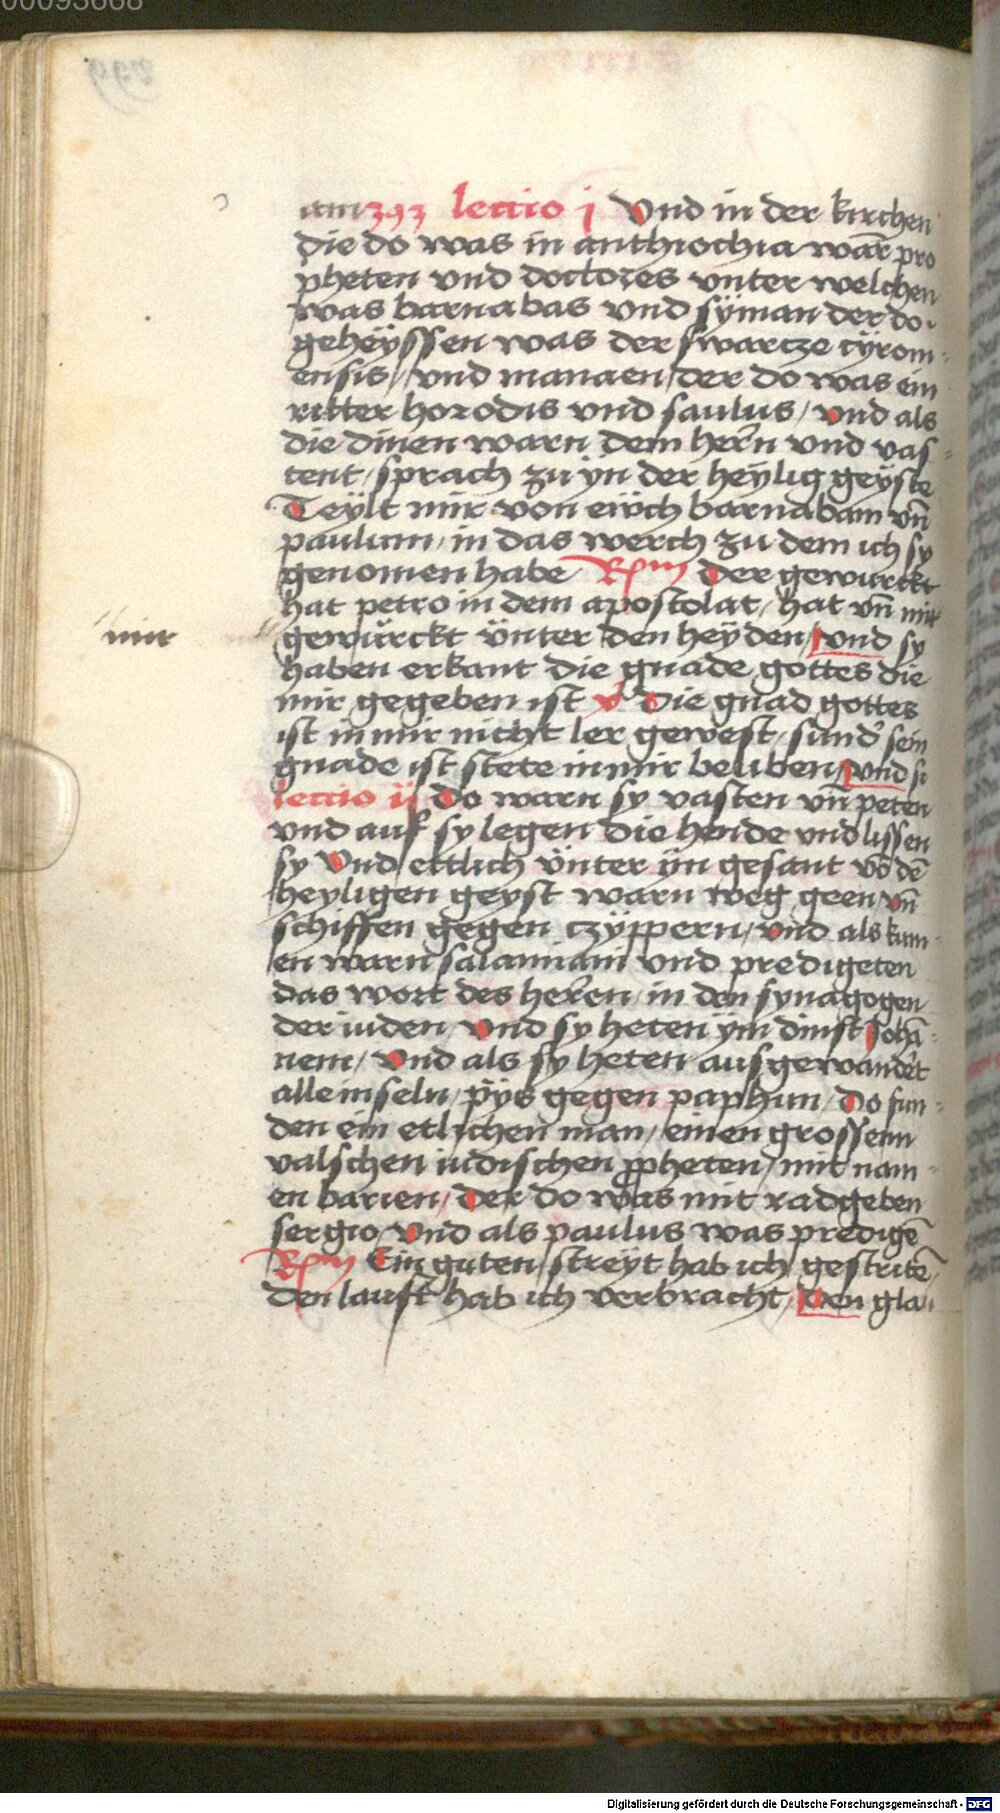 00093668
am lectio j Und in der kirchen
die do was in anthiochia warn̄ pro
pheten vnd doctores vnter welchen
was barnabas vnd sÿman der do
geheÿssen was der swartze tÿrom
ensis / vnd manaen / der do was ein
ritter horodis vnd saulus / vnd als
die dinen warn dem herñ vnd vas
tent / sprach zu yn der heÿlig geÿste
Teÿlt mir von eẅch barnabam vn̄
paulum / in das werch zu dem ich sy
genomen habe Rm der gewurckt
hat petro in dem apostolat / hat vn̄ mir
mir
gewürckt vnter den heÿden / vnd sy
haben erkant die gnade gottes die
mir gegeben ist v Die gnad gottes
ist in mir nicht ler gewest / sund' sein
gnade ist stete in mir beliben / vnd si
lectio ij Do warn sy vasten vn̄ peten
vnd auf sy legen die hende vnd lissen
sy Vnd ettlich vnter ÿn gesant vō dē
heyligen geyst warn weg geen / vn̄
schiffen gegen czÿppern / vnd als kum
en warn salaminam vnd predigeten
das wort des herren / in den synagogen
der iuden / vnd sy heten ÿm dinst Johā
nem / vnd als sy heten ausgewand't
alle inseln / pÿs gegen paphun / Do fun
den ein etlichen man / einen grossenn
valschen iudischen ꝓpheten / mit nam
en barien / der do was mit radgeben
sergio / vnd als paulus was predigē
Rm Ein guten streÿt hab ich gestritē /
den lauft hab ich verbracht / Den glau
Digitalisierung gefördert durch die Deutsche Forschungsgemeinschaft - DFG